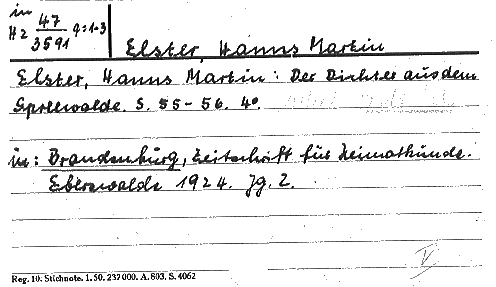 in
H 2 47/3591 q:1-3
Elster, Hanns Martin
Elster, Hanns Martin: Der Dichter aus dem
Spreewalde. S. 55-56. 4°.
in: Brandenburg, Zeitschrift für Heimatkunde.
Eberswalde 1924. Jg. 2.
V
Reg. 10. Stichnote. 1. 50. 237000. A. 803. S. 4062